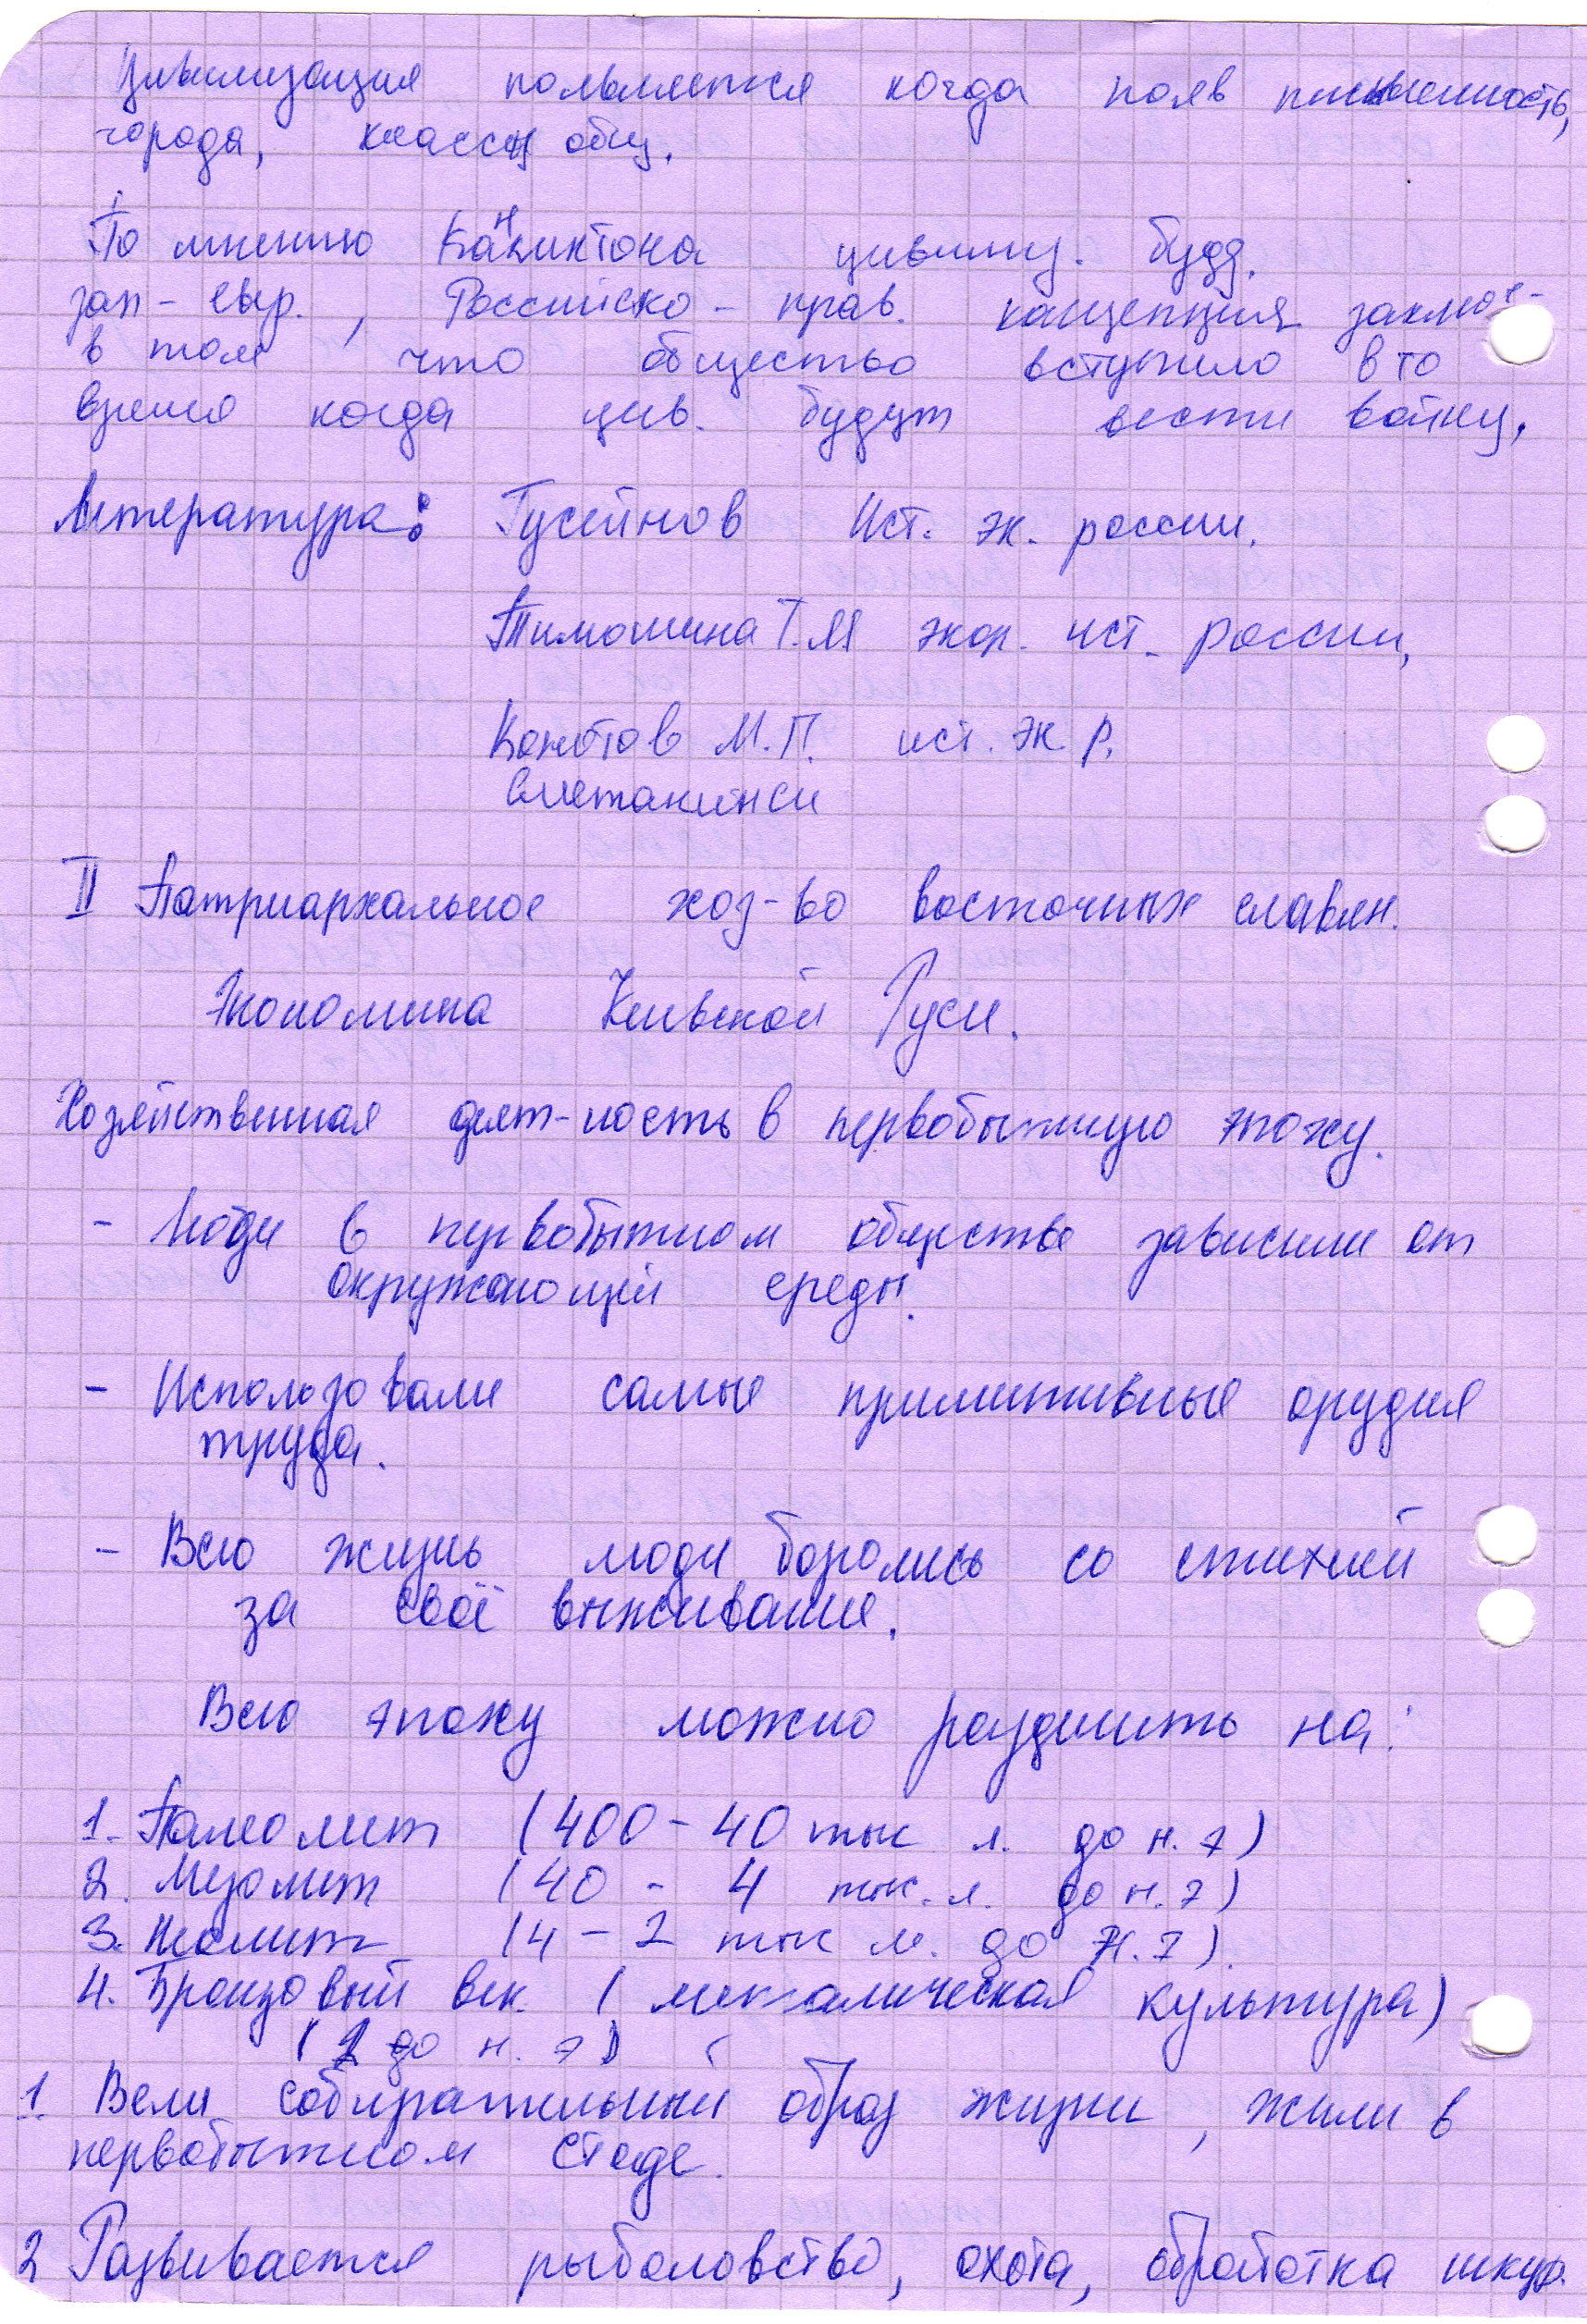 Цивилизация появляется когда появ письменность,
города, классы общ.
По мнению цивилиз. будд.
зап-евр., Российско-прав. концепция заключ-
в том что общество вступило в то
время когда цив. будут вести войну.
Литература: Гусейнов Ист. эк. россии.
Тимошина Т.М экон. ист. россии,
М.П. ист. эк. р.
II Патриархальное хоз-во восточных славян.
Экономика Киевской Руси.
Хозяйственная деят-ность в первобытную эпоху.
- Люди в первобытном обществе зависили от
окружающей среды.
- Использовали самые примитивные орудия
труда.
- Всю жизнь люди боролись со стихией
за своё выживание.
Всю эпоху можно разделить на:
1. Палеолит (400-40 тыс л. до н. э)
2. Мезолит (40 - 4 тыс. л. до н. э)
3. Неолит (4-2 тыс л. до н. э)
4. Бронзовый век. (металическая культура)
( до н. э)
1. Вели собирательный образ жизни, жили в
первобытном стаде.
2 Развивается рыболовство, охота, обработка шкур.